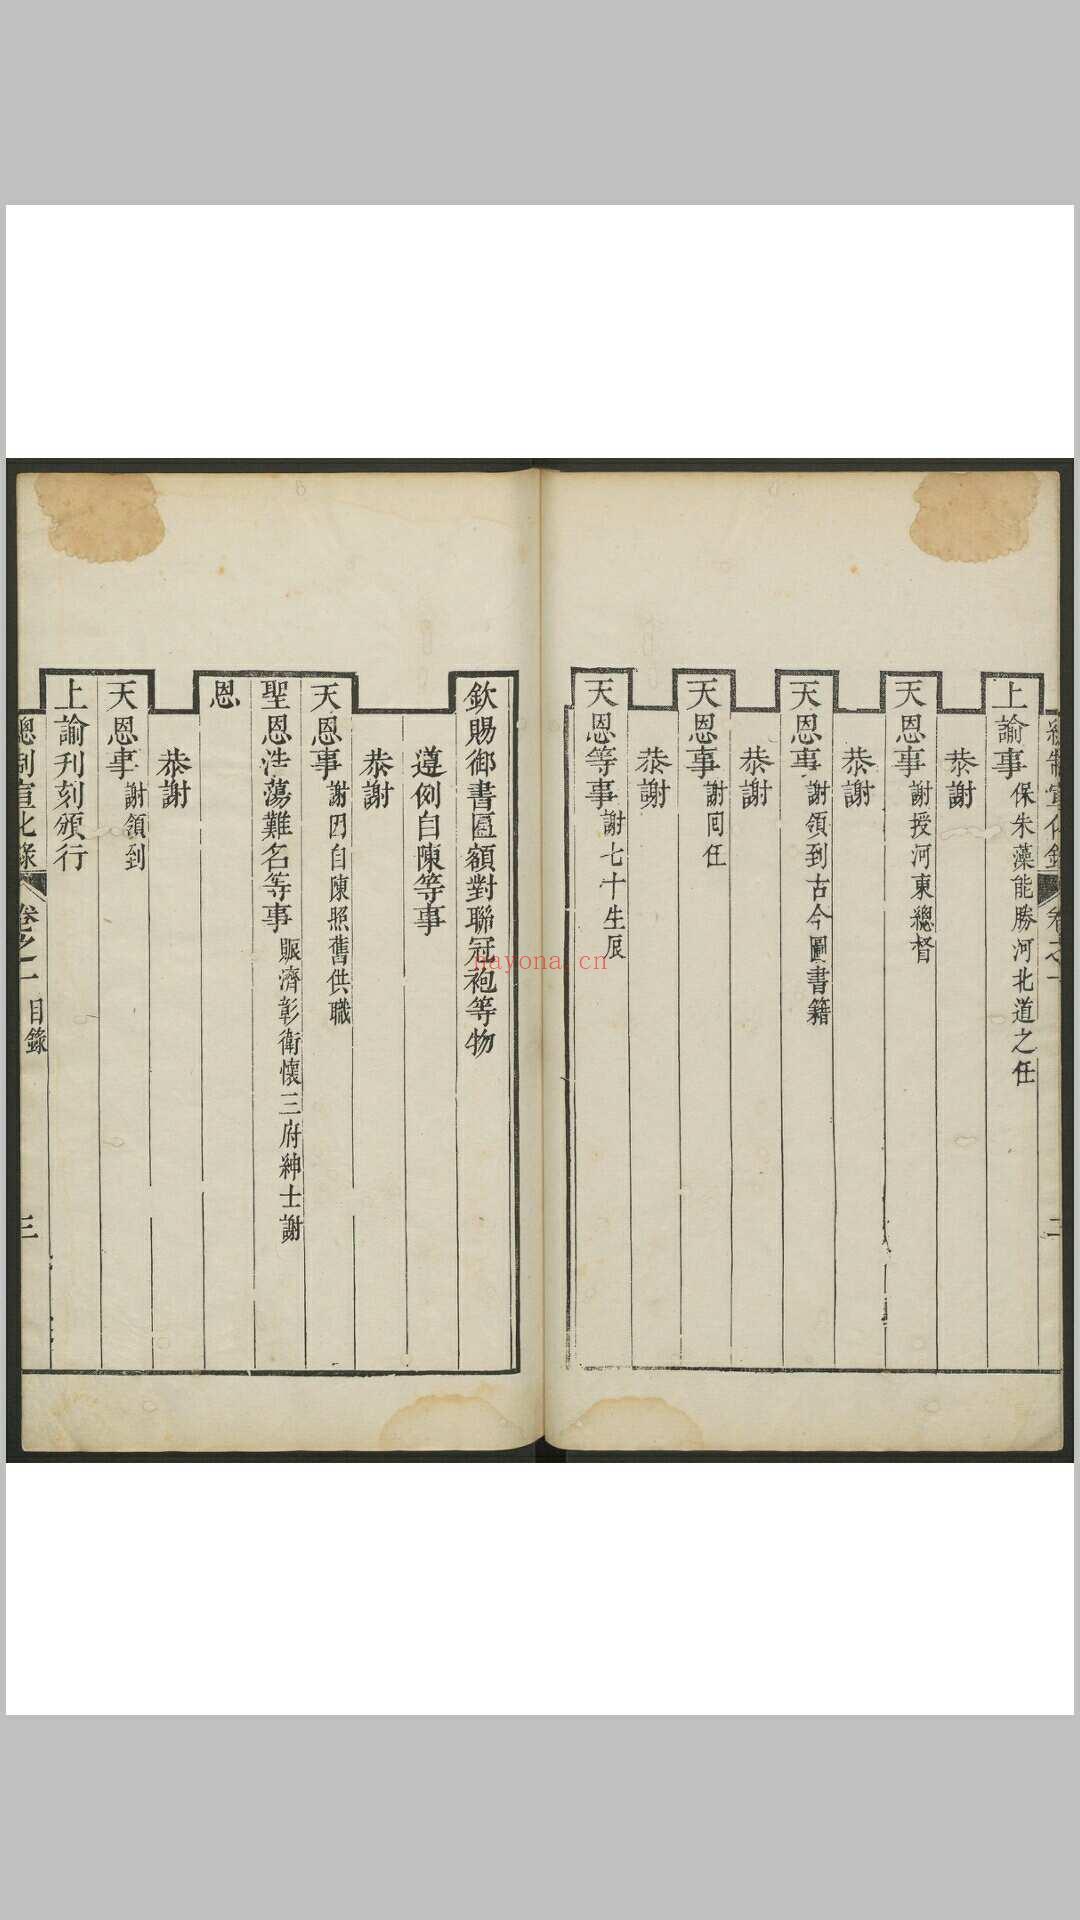 總制宣化錄 卷之一 二
上諭事 保朱藻能勝河北道之任
恭謝
天恩事 謝授河東總督
恭謝
天恩事 謝領到古今圖書籍
恭謝
天恩事 謝囘任
恭謝
天恩等事 謝七十生辰
欽賜御書匾額對聯冠袍等物
遵例自陳等事
恭謝
天恩事 謝因自陳照舊供職
聖恩浩蕩難名等事 賑濟彰衛懷三府紳士謝
恩
恭謝
天恩事 謝領到
上諭刊刻頒行
總制宣化錄 卷之一 目錄 三
nayona.cn